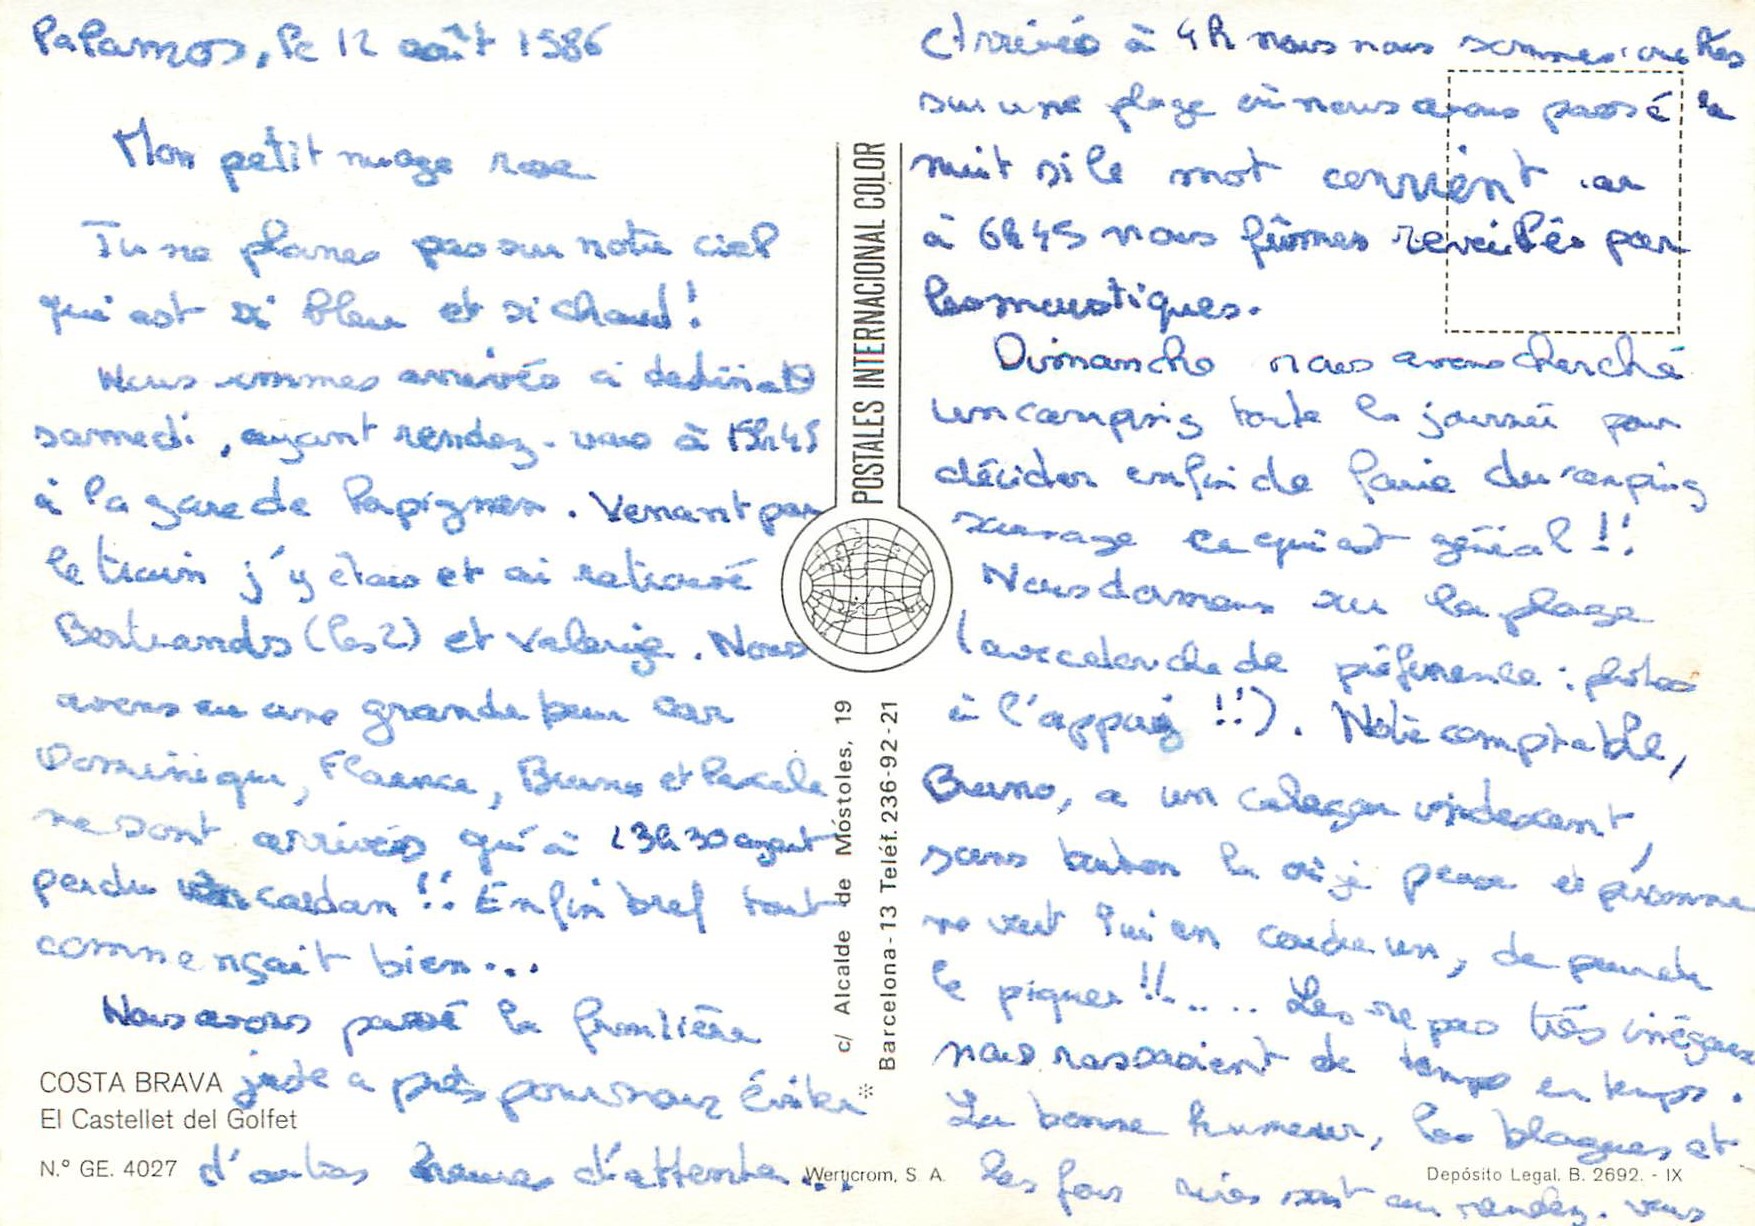 Palamos, le 12 août 1986
Mon petit nuage rose
Tu ne planes pas sur notre ciel
qui est si bleu et si chaud !
Nous sommes arrivés à
samedi, ayant rendez-vous à 15h45
à la gare de Papignan. Venant par
le train j'y étais et ai retrouvé
Bertrands (les 2) et Valerie. Nous
avons eu une grande peur car
Dominique, Florence, Bruno et Pascale
ne sont arrivés qu'à 23h30 ayant
perdu un cardan !! Enfin bref tout
commençait bien...
Nous avons passé la frontière
juste après pour nous éviter
d'autres heures d'attente...
COSTA BRAVA
El Castellet del Golfet
N.° GE. 4027
POSTALES INTERNACIONAL COLOR
c/ Alcalde de Móstoles, 19
Barcelona-13 Teléf. 236-92-21
Werticrom, S. A.
Arrivés à 4h nous nous sommes arrêtés
sur une plage où nous avons passé la
nuit si le mot convient car
à 6h45 nous fûmes reveillés par
les moustiques.
Dimanche nous avons cherché
un camping toute la journée pour
décider enfin de faire du camping
sauvage ce qui est génial !!
Nous dormons sur la plage
(avec de préférence : photos
à l'appui !!). Notre comptable,
Bruno, a un caleçon indexant,
sans bouton là où je pense et personne
ne veut lui en coudre un, de peur de
le piquer !!..... Les repas très inégaux
nous rassasient de temps en temps.
La bonne humeur, les blagues et
les fous rires sont au rendez-vous
Depósito Legal. B. 2692. - IX